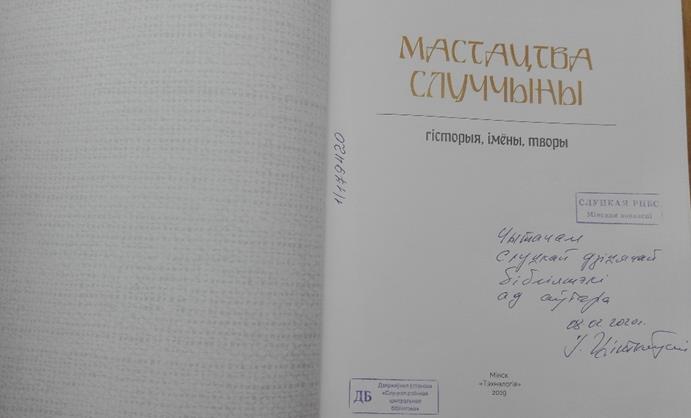 МАСТАЦТВА
СЛУЧЧЫНЫ
гісторыя, імёны, творы
1/179420
СЛУЦКАЯ РЦБС
Мінскай вобласці
Чытачам
Слуцкай дзіцячай
бібліятэкі
ад аўтара
08 02 2020г.
Мінск
«Тэхналогія»
2019
ДБ
Дзяржаўная ўстанова
«Слуцкая раённая
цэнтральная
бібліятэка»